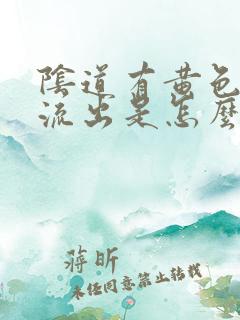 陰道有黃色
流出是怎麼
蔣昕
未经同意禁止转载